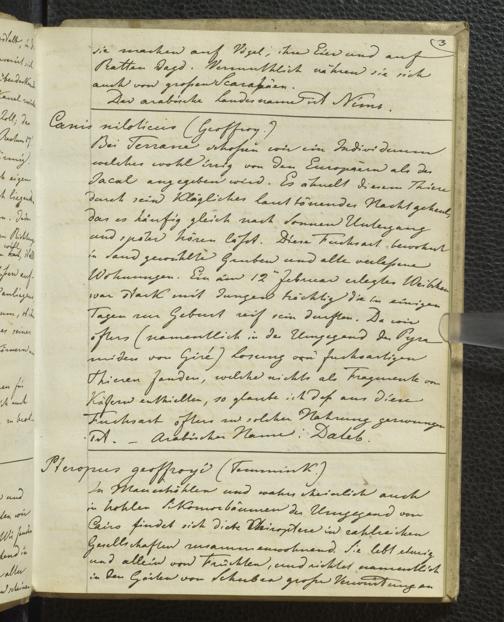 3
sie machen auf Vögel, ihre Eier und auf
Ratten Jagd. Vermuthlich nähren sie sich
auch von großen Scarabäen.
Der arabische Landesname ist Nims.
Canis niloticus (Geoffroy.)
Bei Terrane schoßen wir ein Individuum
welches wohl irrig von den Europäern als der
Jacal angegeben wird. Es ähnelt diesem Thiere
durch sein klägliches laut tönendes Nachtgeheul,
das es häufig gleich nach Sonnen Untergang
und später hören läßt. Diese Fuchsart bewohnt
in Sand gewühlte Gruben und alte verlassene
Wohnungen. Ein am 12n Februar erlegtes Weibchen
war stark mit Jungen trächtig die in einigen
Tagen zur Geburt reif sein durften. Da wir
öfters (namentlich in der Umgegend der Pyra
miden von Gizé) Losung von fuchsartigen
Thieren fanden, welche nichts als Fragmente von
Käfern enthielten, so glaube ich daß auch diese
Fuchsart öfters zu solcher Nahrung gezwungen
ist. — Arabischer Name: Daleb.
Pteropus geoffroyi (Temmink)
In Mauerhöhlen und wahrscheinlich auch
in hohlen Sikomorbäumen der Umgegend von
Cairo findet sich diese Chiroptere in zahlreichen
Gesellschaften zusammenwohnend. Sie lebt einzig
und allein von Früchten, und richtet namentlich
in den Gärten von Schubra große Verwüstung an